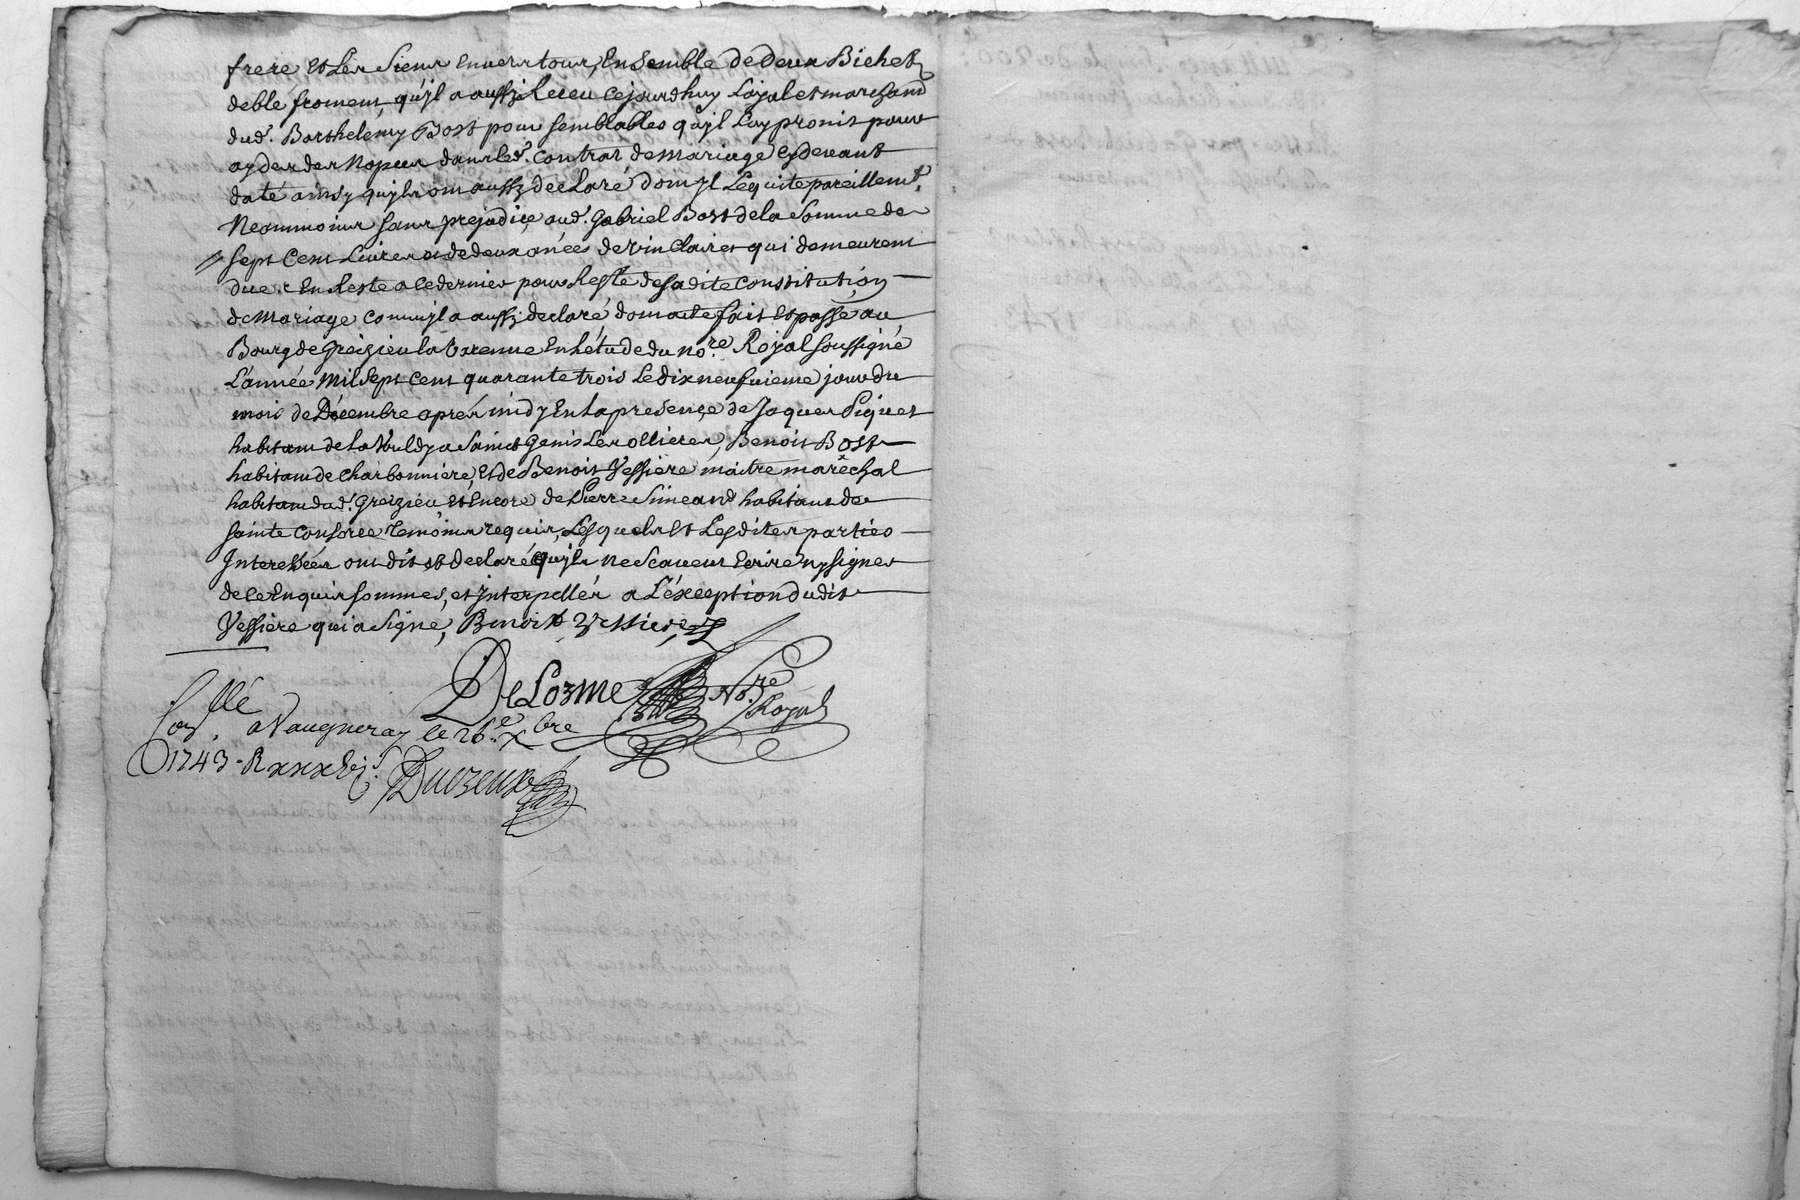 frere et Les Siens envers tous, Ensemble de deux Bichets
de blé froment qu'jl a aussj Receu cejourdhuy Loyal et marchand
dud. Barthelemy Bost pour semblables qu'jl Luy promit pour
ayder des Nopces dans led. contrat de mariage cydevant
daté ainsy qu'jls ont aussj declaré dont jl Le quite pareillemt.
Neommoins sans prejudice aud. Gabriel Bost de la Somme de
sept Cent Livres et de deux anées de vin Clairet qui demeurent
dues En Reste a ce dernier pour Reste de sadite constitution
de Mariage comm'jl a aussj declaré dont acte fait et passé au
Bourg de Greizieu la Varenne En L'étude du no.re Royal soussigné
L'année Mil Sept Cent quarante trois Le dix neufuieme jour du
mois de Décembre aprés midy En la presençe de Jaques Piquet
habitant de la Sainct Genis Les ollieres, Benoit Bost
habitant de Charbonniere, et de Benoit Veßiere maitre maréchal
habitant aud. Greizieu, et Encore de Pierre Simeand habitant de
Sainte Consorce Temoins requis, Lesquels et Lesdites parties
Interessées ont dit et declaré qu'jls ne Scavent Ecrire ny signer
de ce Enquis sommés, et Interpellés a L'éxception dudit
Veßiere qui a Signé, Benoit Vessiere
DeLorme No.re
Royal
Con.llé a Vaugneray le 26.e xbre
1743. R